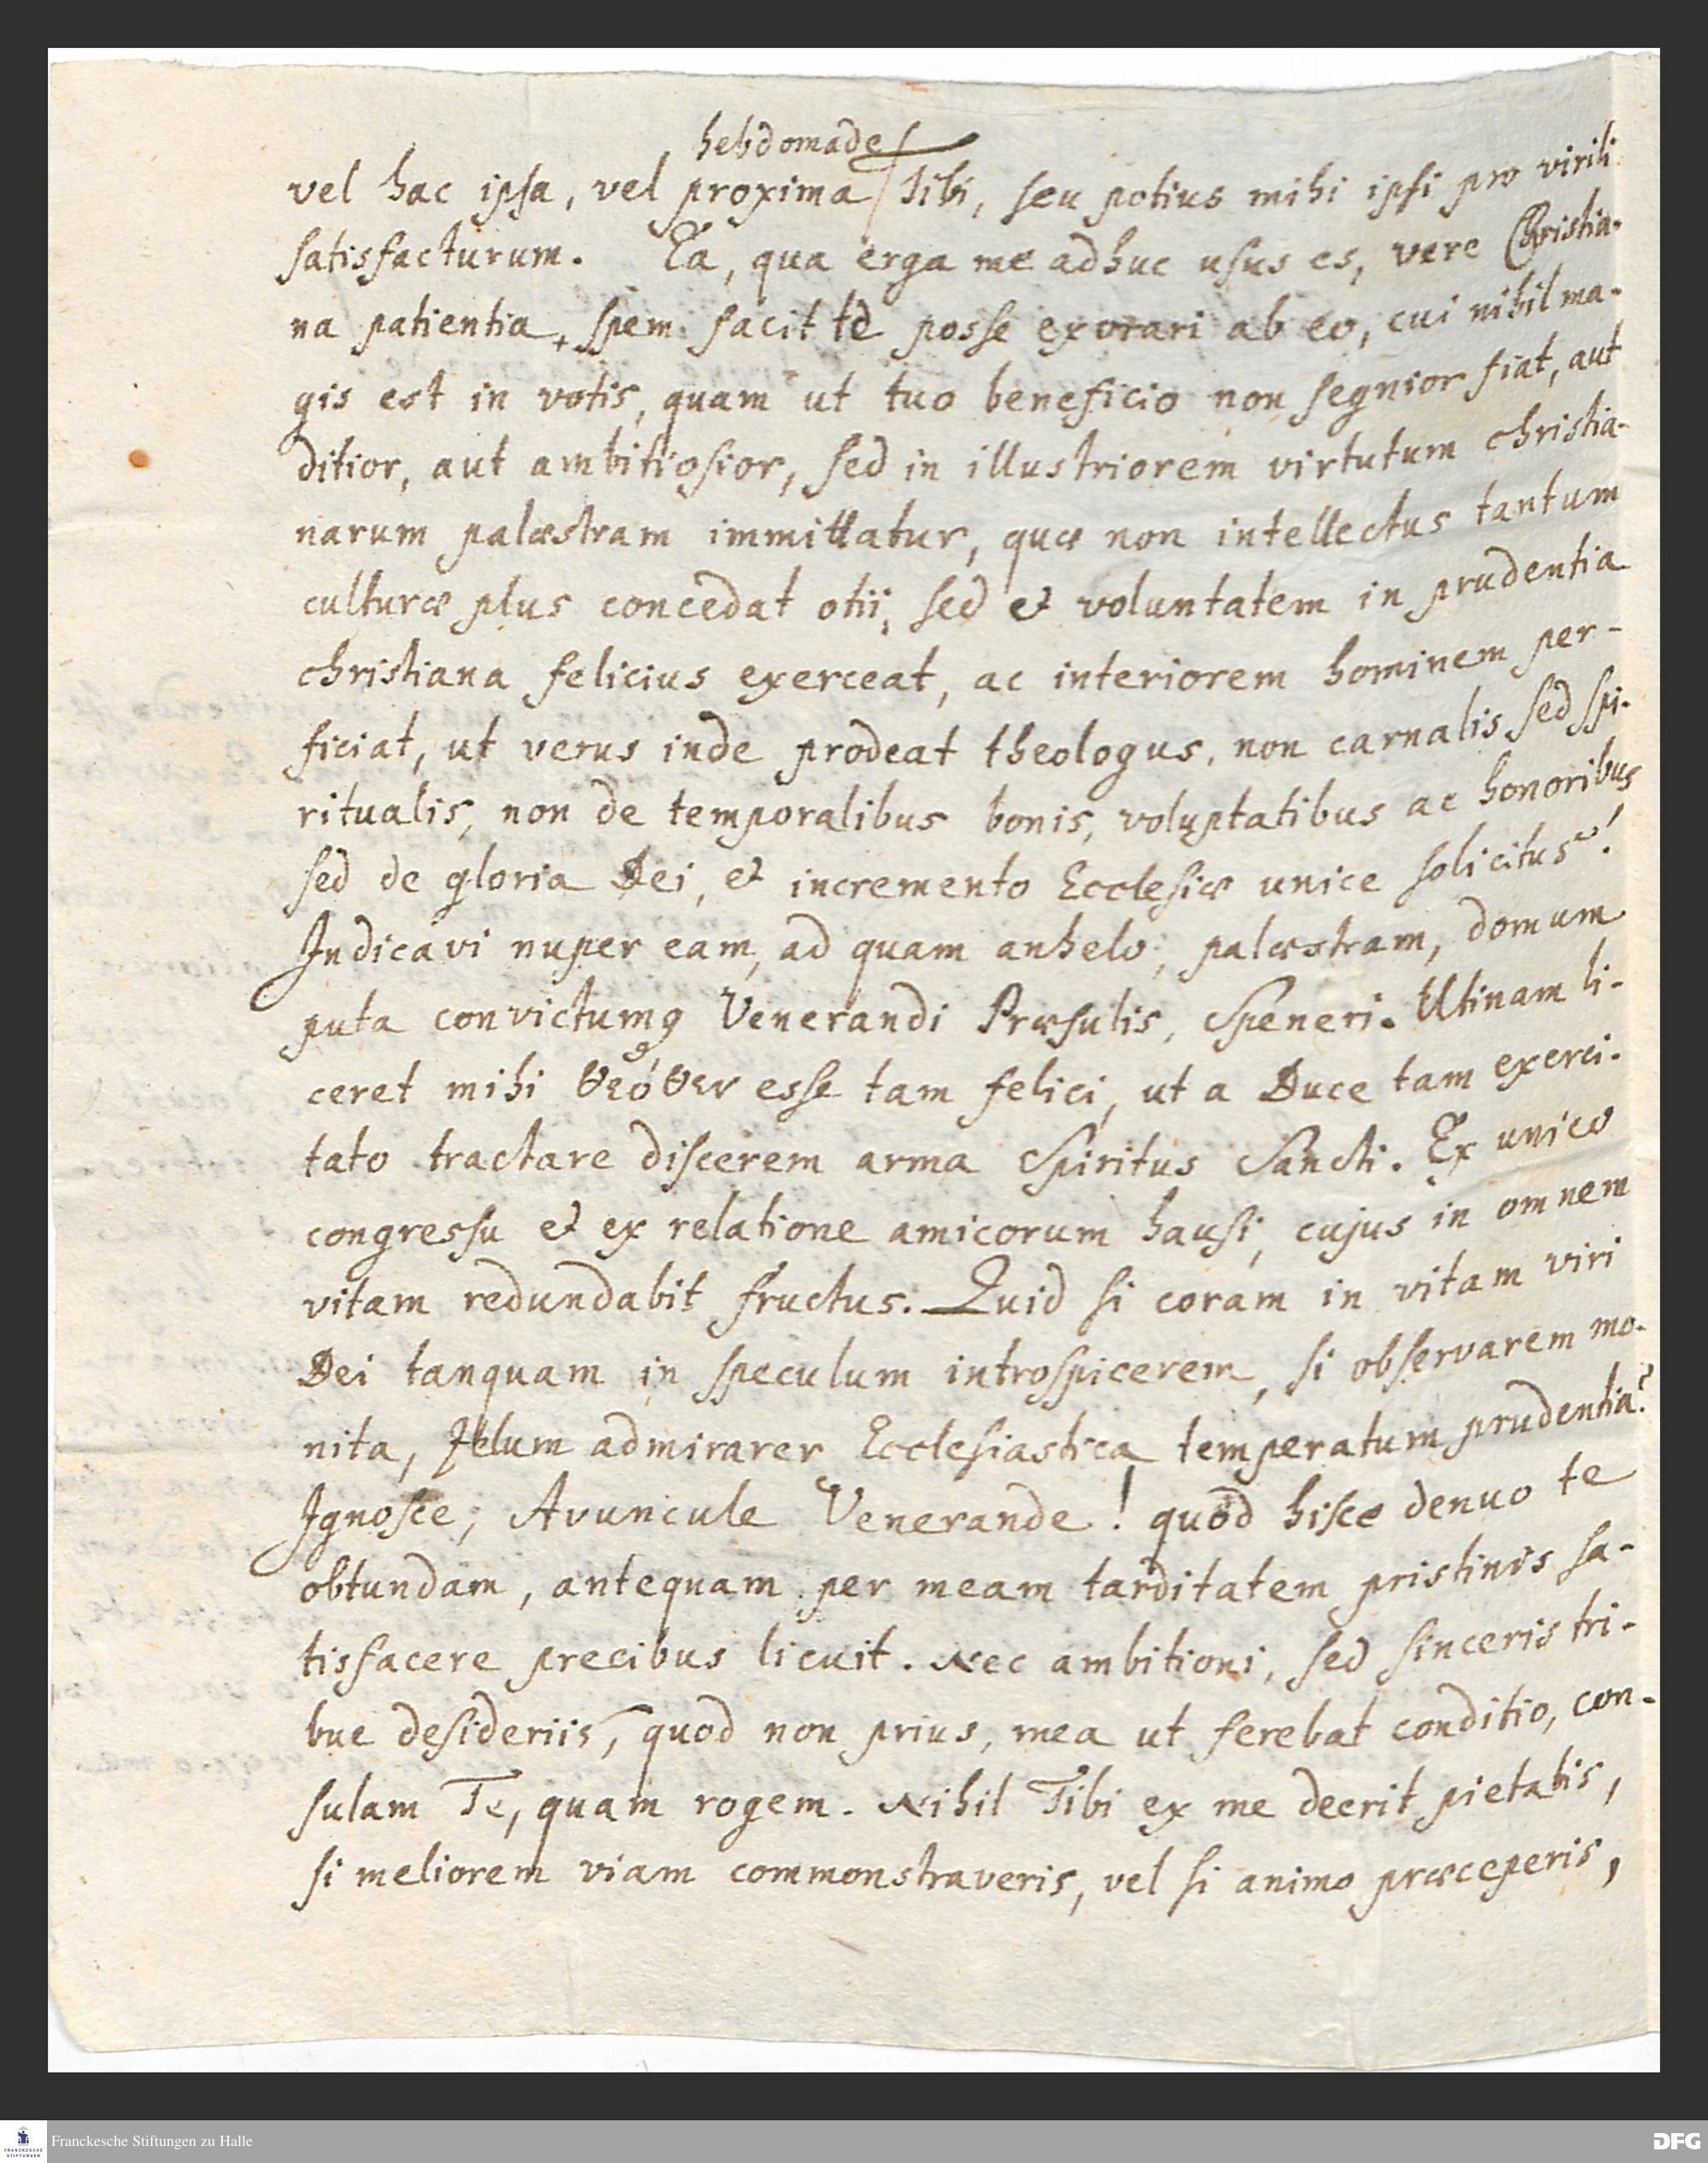 hebdomade
vel hac ipsa, vel proxima Tibi, seu potius mihi ipsi pro virili
satisfacturum. Ea, qua erga me adhuc usus es, vere Christia-
na patientia, spem facit te posse exorari ab eo, cui nihil ma-
gis est in votis, quam ut tuo beneficio non segnior fiat, aut
ditior, aut ambitiosior, sed in illustriorem virtutum christia-
narum palæstram immittatur, quæ non intellectus tantum
culturæ plus concedat otii, sed & voluntatem in prudentia
christiana felicius exerceat, ac interiorem hominem per-
ficiat, ut verus inde prodeat theologus, non carnalis sed spi-
ritualis, non de temporalibus bonis, voluptatibus ac honoribus,
sed de gloria Dei, & incremento Ecclesiæ unice solicitus!
Indicavi nuper eam, ad quam anhelo, palæstram, domum
puta convictumq Venerandi Præsulis, Speneri. Utinam li-
ceret mihi θεόθεν esse tam felici, ut a Duce tam exerci-
tato tractare discerem arma Spiritus Sancti. Ex unico
congressu & ex relatione amicorum hausi, cujus in omnem
vitam redundabit fructus. Quid si coram in vitam viri
Dei tanquam in speculum introspicerem, si observarem mo-
nita, zelum admirarer Ecclesiastica temperatum prudentia?
Ignosce, Avuncule Venerande! quod hisce denuo te
obtundam, antequam per meam tarditatem pristinis sa-
tisfacere precibus licuit. Nec ambitioni, sed sinceris tri-
bue desideriis, quod non prius, mea ut ferebat conditio, con-
sulam Te, quam rogem. Nihil Tibi ex me deerit pietatis,
si meliorem viam commonstraveris, vel si animo præceperis,
Franckesche Stiftungen zu Halle
DFG